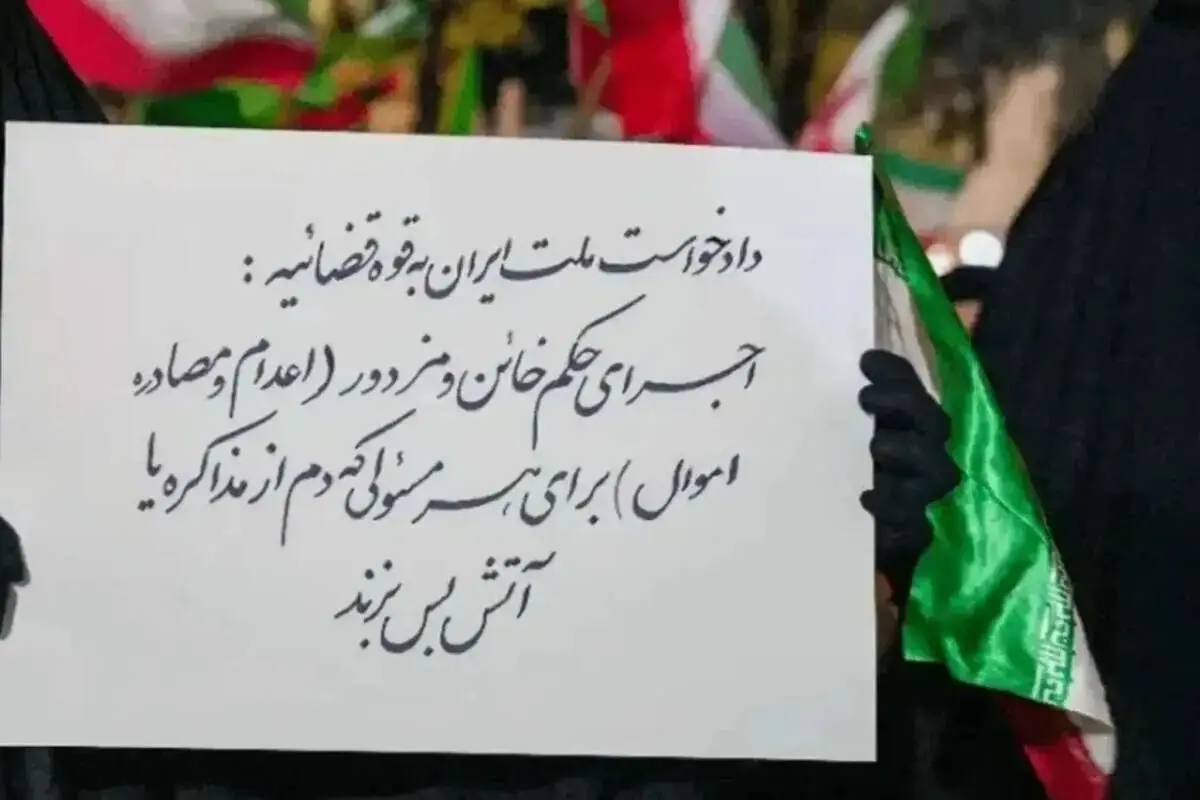 دادخواست ملت ایران به قوه قضائیه :
اجرای حکم خائن و مزدور (اعدام و مصادره
اموال) برای هر مسئولی که دم از مذاکره یا
آتش بس بزند